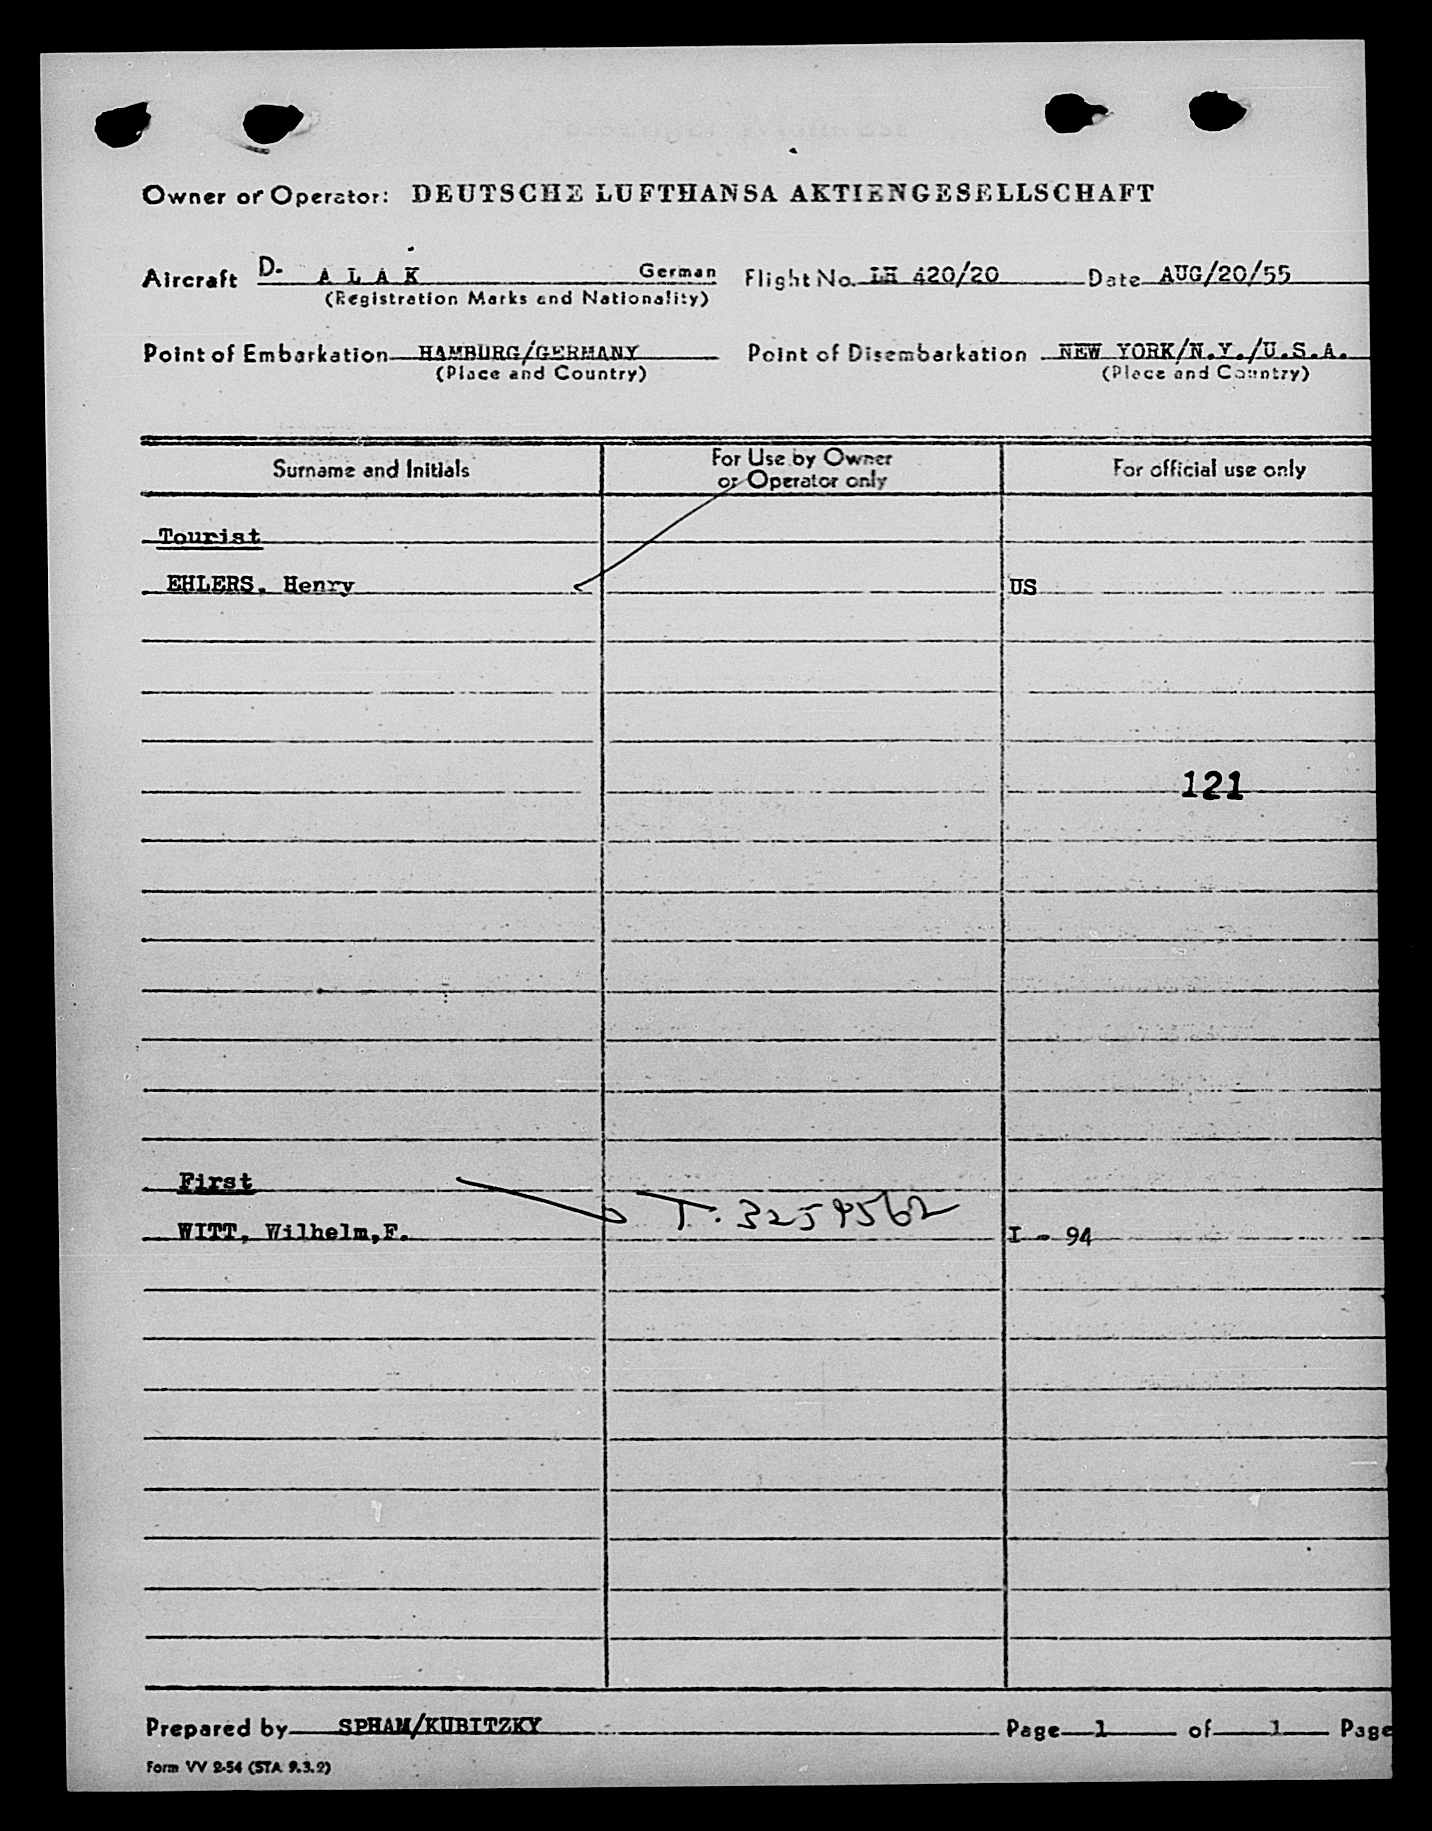 Owner or Operator: DEUTSCHE LUFTHANSA AKTIENGESELLSCHAFT
Aircraft D. A L A K German Flight No. LH 420/20 Date AUG/20/55
(Registration Marks and Nationality)
Point of Embarkation HAMBURG/GERMANY Point of Disembarkation NEW YORK/N.Y./U.S.A.
(Place and Country) (Place and Country)
Surname and Initials For Use by Owner or Operator only For official use only
Tourist
EHLERS, Henry US
121
First
T. 3259562
WITT, Wilhelm,F. I - 94
Prepared by SPHAM/KUBITZKY Page 1 of 1 Page
Form VV 2-54 (STA 9.3.2)